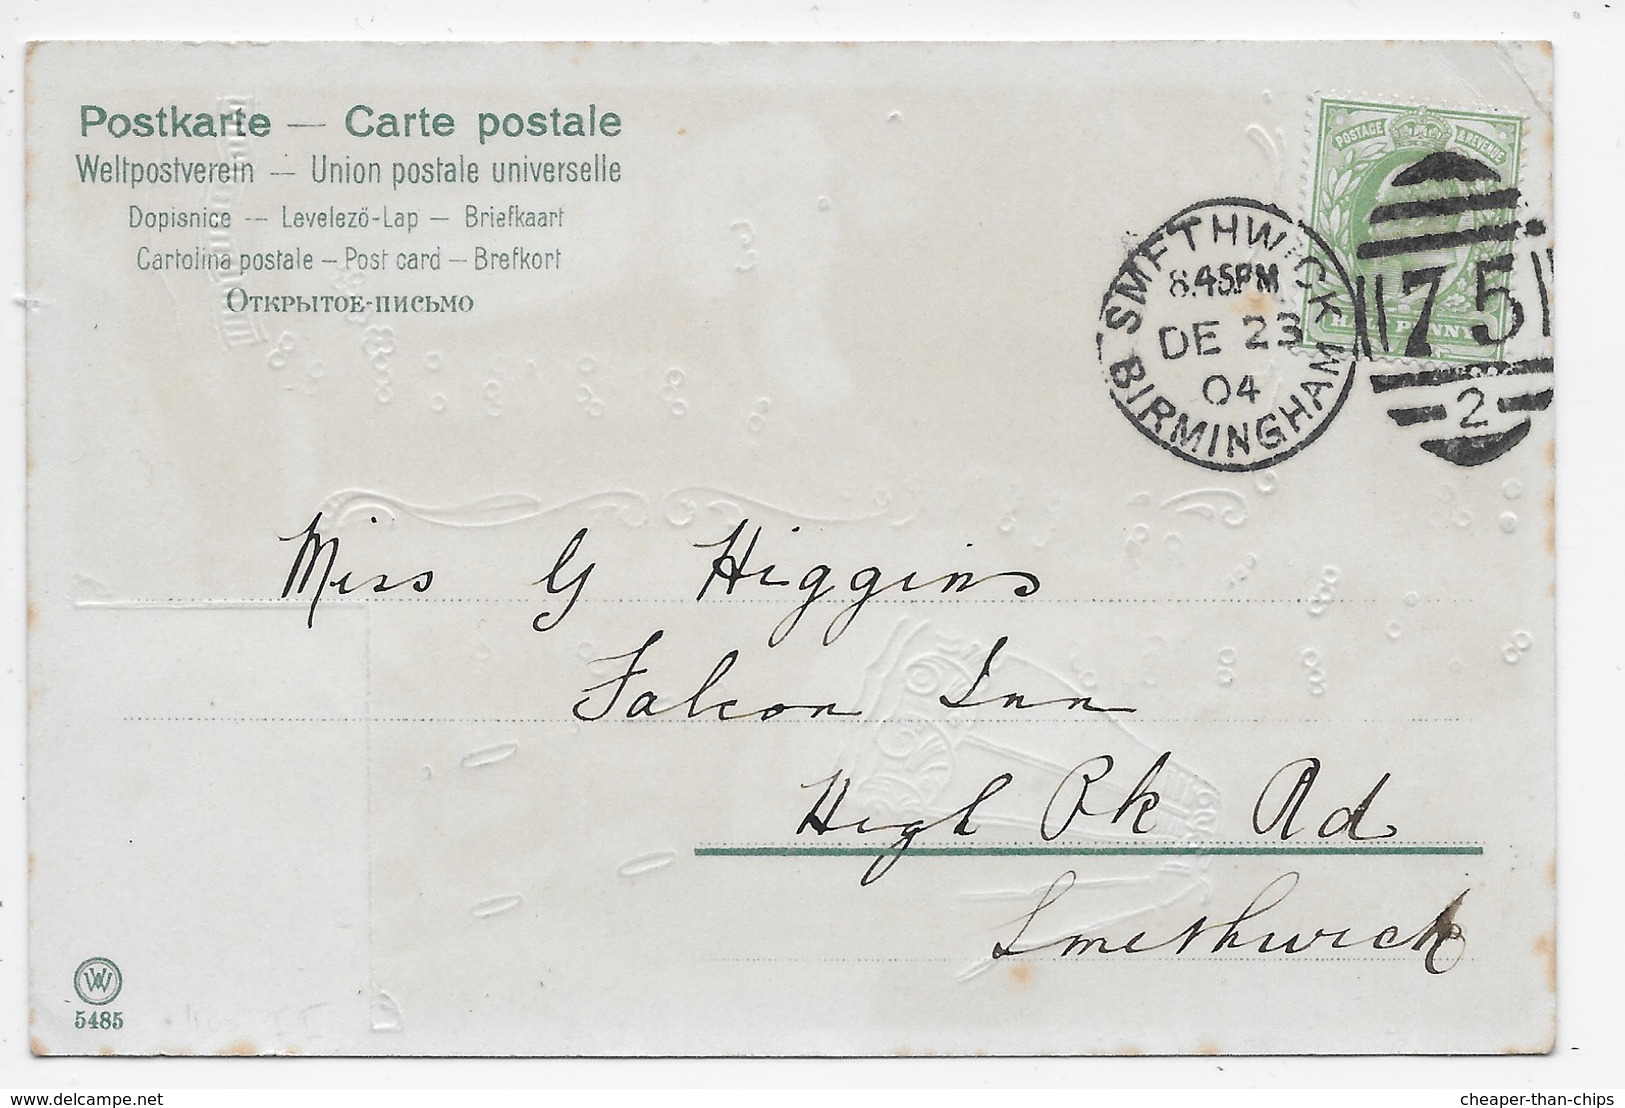 Postkarte — Carte postale
Weltpostverein — Union postale universelle
Dopisnice — Levelező-Lap — Briefkaart
Cartolina postale — Post card — Brefkort
Открытое-письмо
POSTAGE & REVENUE
HALF PENNY
SMETHWICK
8.45PM
DE 23
04
BIRMINGHAM
75
2
Miss G Higgins
Falcon Inn
High Pk Rd
Smethwick
W
5485
www.delcampe.net
cheaper-than-chips